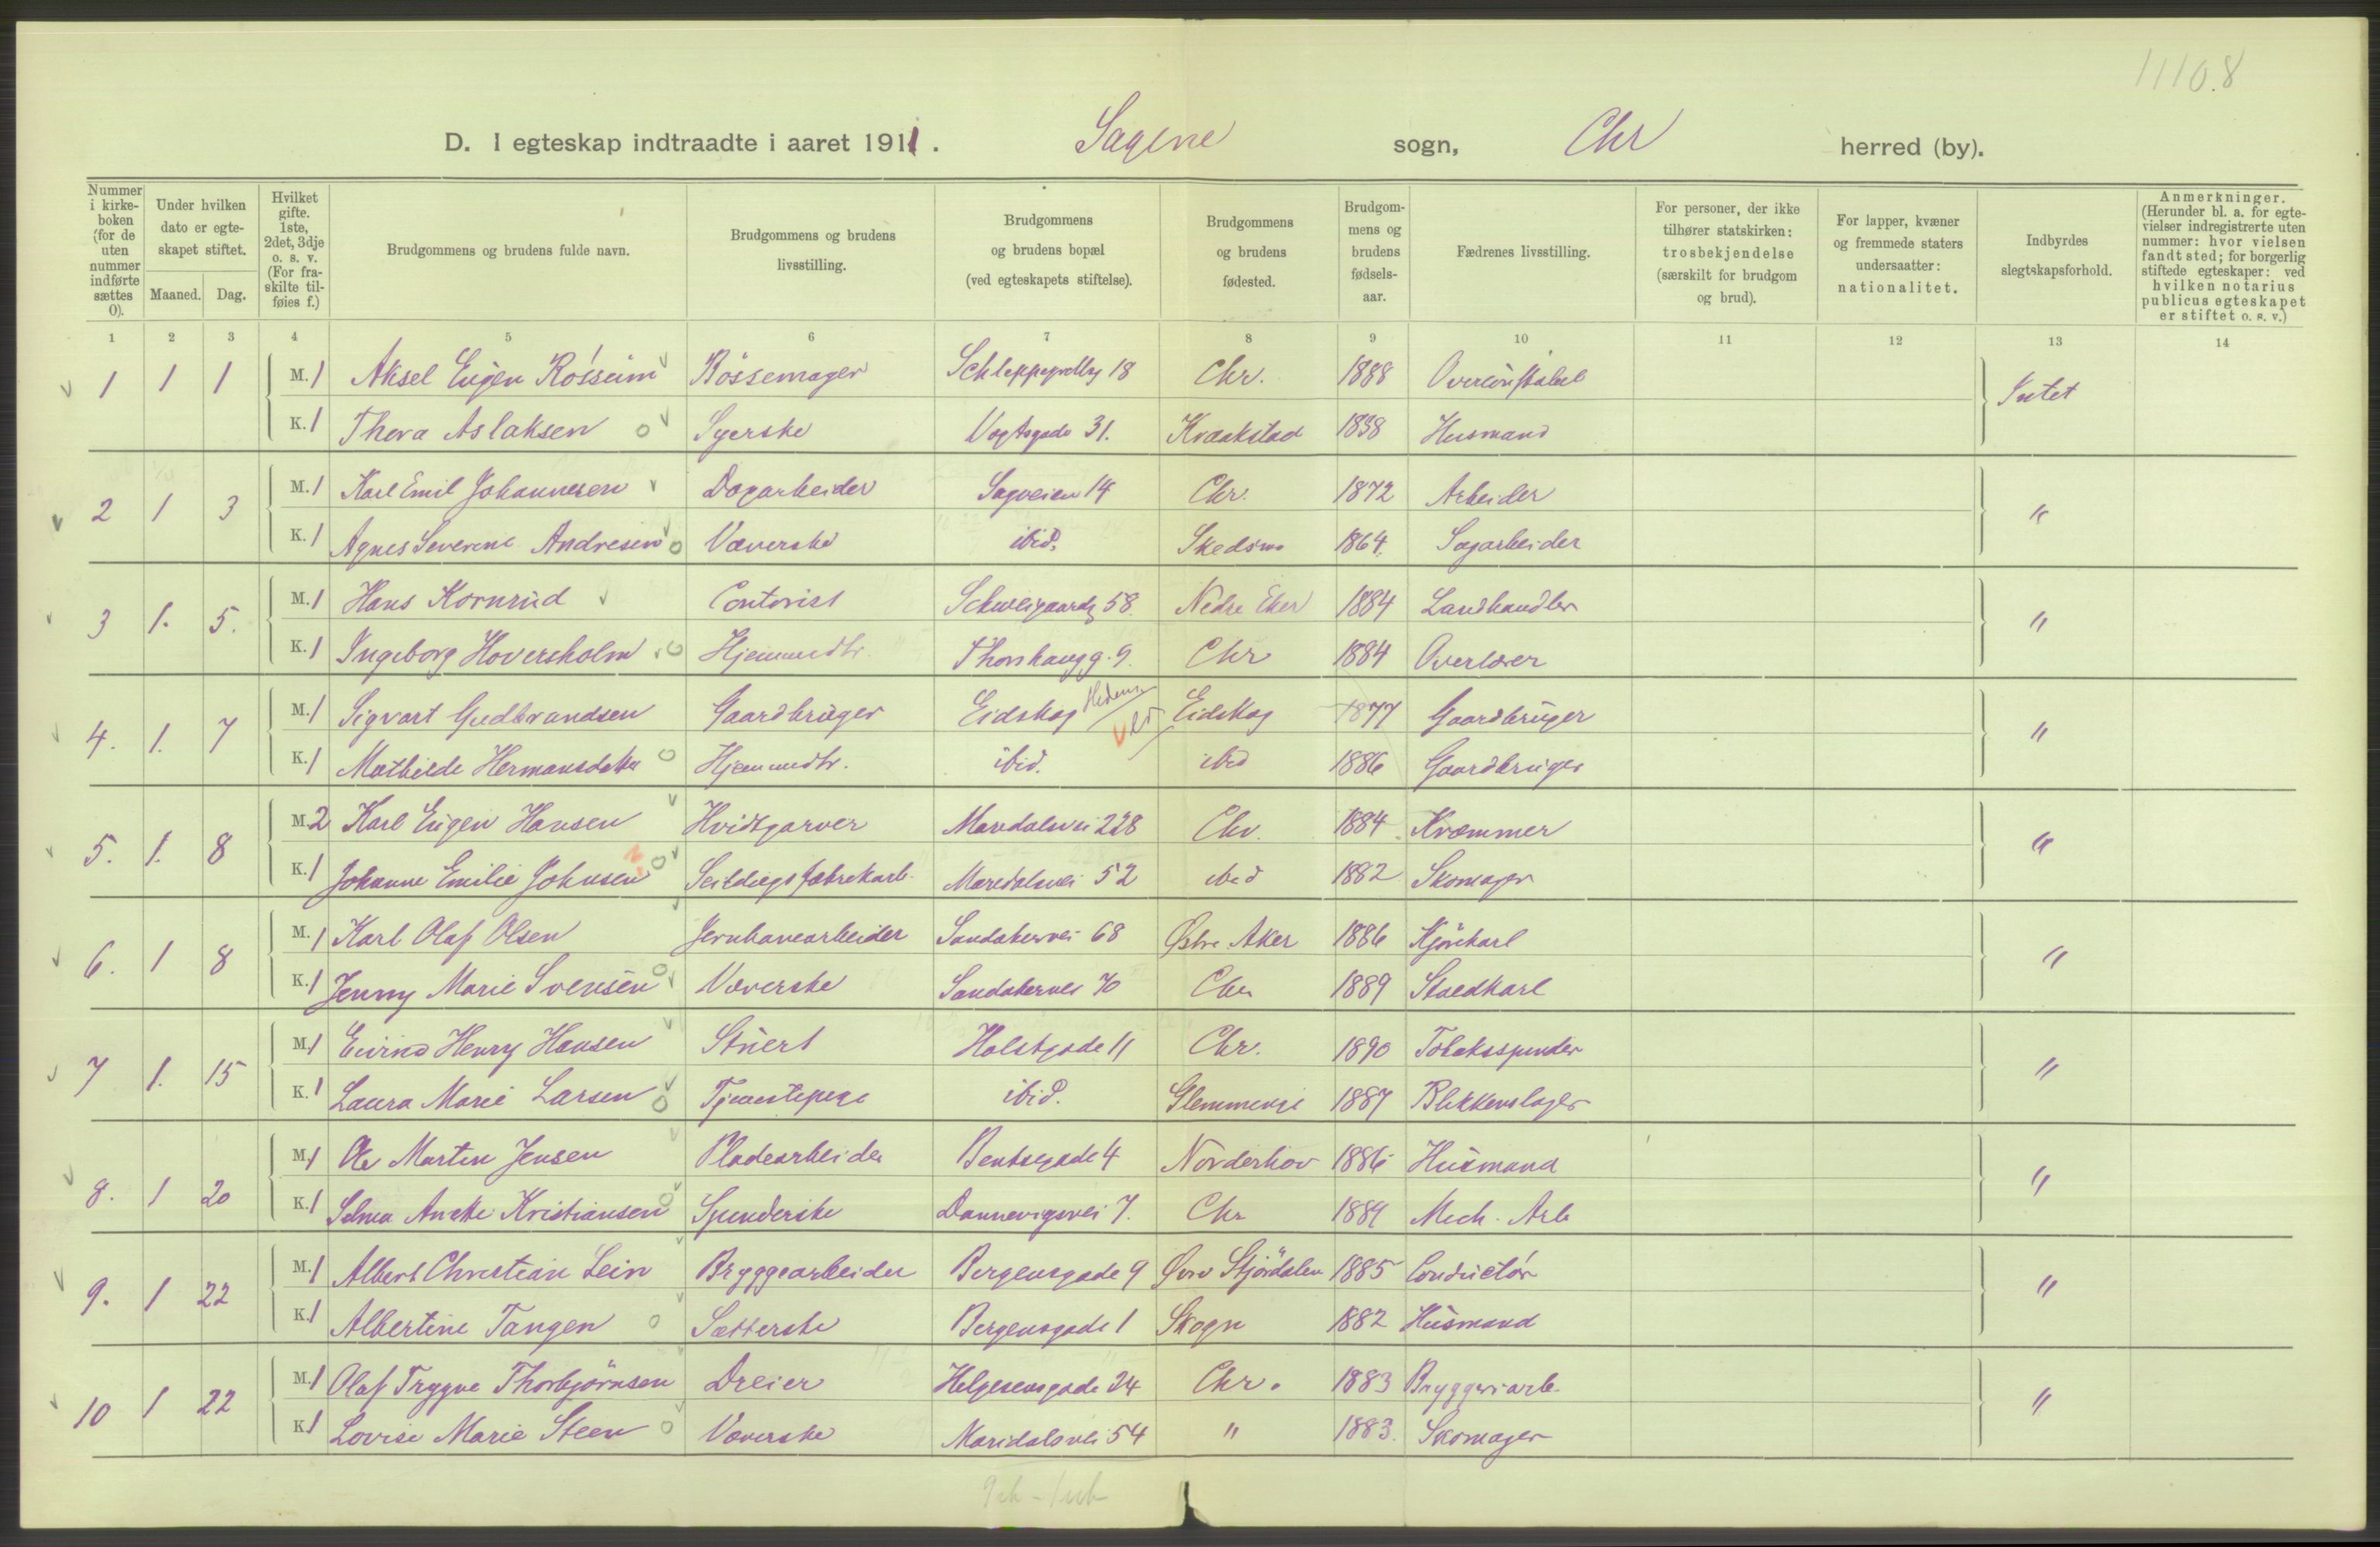 1110.8
D. I egteskap indtraadte i aaret 1911. Sagene sogn, Chr herred (by).
Nummer i kirkeboken (for de uten nummer indførte sættes 0).
Under hvilken dato er egteskapet stiftet.
Maaned. Dag.
Hvilket gifte. 1ste, 2det, 3dje o. s. v. (For fraskilte tilføies f.)
Brudgommens og brudens fulde navn.
Brudgommens og brudens livsstilling.
Brudgommens og brudens bopæl (ved egteskapets stiftelse).
Brudgommens og brudens fødested.
Brudgommens og brudens fødselsaar.
Fædrenes livsstilling.
For personer, der ikke tilhører statskirken: trosbekjendelse (særskilt for brudgom og brud).
For lapper, kvæner og fremmede staters undersaatter: nationalitet.
Indbyrdes slegtskapsforhold.
Anmerkninger. (Herunder bl. a. for egtevielser indregistrerte uten nummer: hvor vielsen fandt sted; for borgerlig stiftede egteskaper: ved hvilken notarius publicus egteskapet er stiftet o. s. v.)
1 2 3 4 5 6 7 8 9 10 11 12 13 14
1 1 1 M. 1 Aksel Eugen Rosseim Bössemager Schleppegrellsg 18 Chr. 1888 Overconstabel Intet
K. 1 Thora Aslaksen Syerske Vogtsgade 31. Kraakstad 1888 Husmand
2 1 3 M. 1 Karl Emil Johannesen Dagarbeider Sagveien 14 Chr. 1872 Arbeider "
K. 1 Agnes Severine Andresen Væverske ibid. Skedsmo 1864. Sagarbeider
3 1. 5. M. 1 Hans Kornrud Contorist Schweigaardsg 58. Nedre Eker 1884 Landhandler "
K. 1 Ingeborg Hoversholm Hjemmedtr. Thorshaugg. 9. Chr 1884 Overlærer
4. 1. 7 M. 1 Sigvart Gudbrandsen Gaardbruger Eidskog Hedem. Eidskog 1877 Gaardbruger "
K. 1 Mathilde Hermansdatter Hjemmedtr. ibid. ibid 1886 Gaardbruger
5. 1. 8 M. 2 Karl Eugen Hansen Hvidtgarver Maridalsvei 228 Chr. 1884 Kræmmer "
K. 1 Johanne Emilie Johnsen Seildugsfabrikarb. Maridalsvei 52 ibid 1882 Skomager
6. 1 8 M. 1 Karl Olaf Olsen Jernbanearbeider Sandakervei 68 Østre Aker 1886 Kjörekarl "
K. 1 Jenny Marie Svensen Væverske Sandakervei 70 Chr 1889 Staldkarl
7 1. 15 M. 1 Eivind Henry Hansen Stuert Holstgade 11 Chr. 1890 Tobaksspinder "
K. 1 Laura Marie Larsen Tjenestepige ibid. Glemminge 1887 Blikkenslager
8. 1 20 M. 1 Ole Martin Jensen Pladearbeider Bentsegade 4 Norderhov 1886 Husmand "
K. 1 Selma Anette Kristiansen Spinderske Dannevigsvei 7. Chr 1889 Mech. Arb
9. 1 22 M. 1 Albert Christian Lein Bryggearbeider Bergensgade 9 Øvre Stjördalen 1885 Conductör "
K. 1 Albertine Tangen Sætterske Bergensgade 1 Skogn 1882 Husmand
10 1 22 M. 1 Olaf Trygve Thorbjörnsen Dreier Helgesensgade 24 Chr. 1883 Bryggeriarb. "
K. 1 Lovise Marie Steen Væverske Maridalsvei 54 " 1883. Skomager